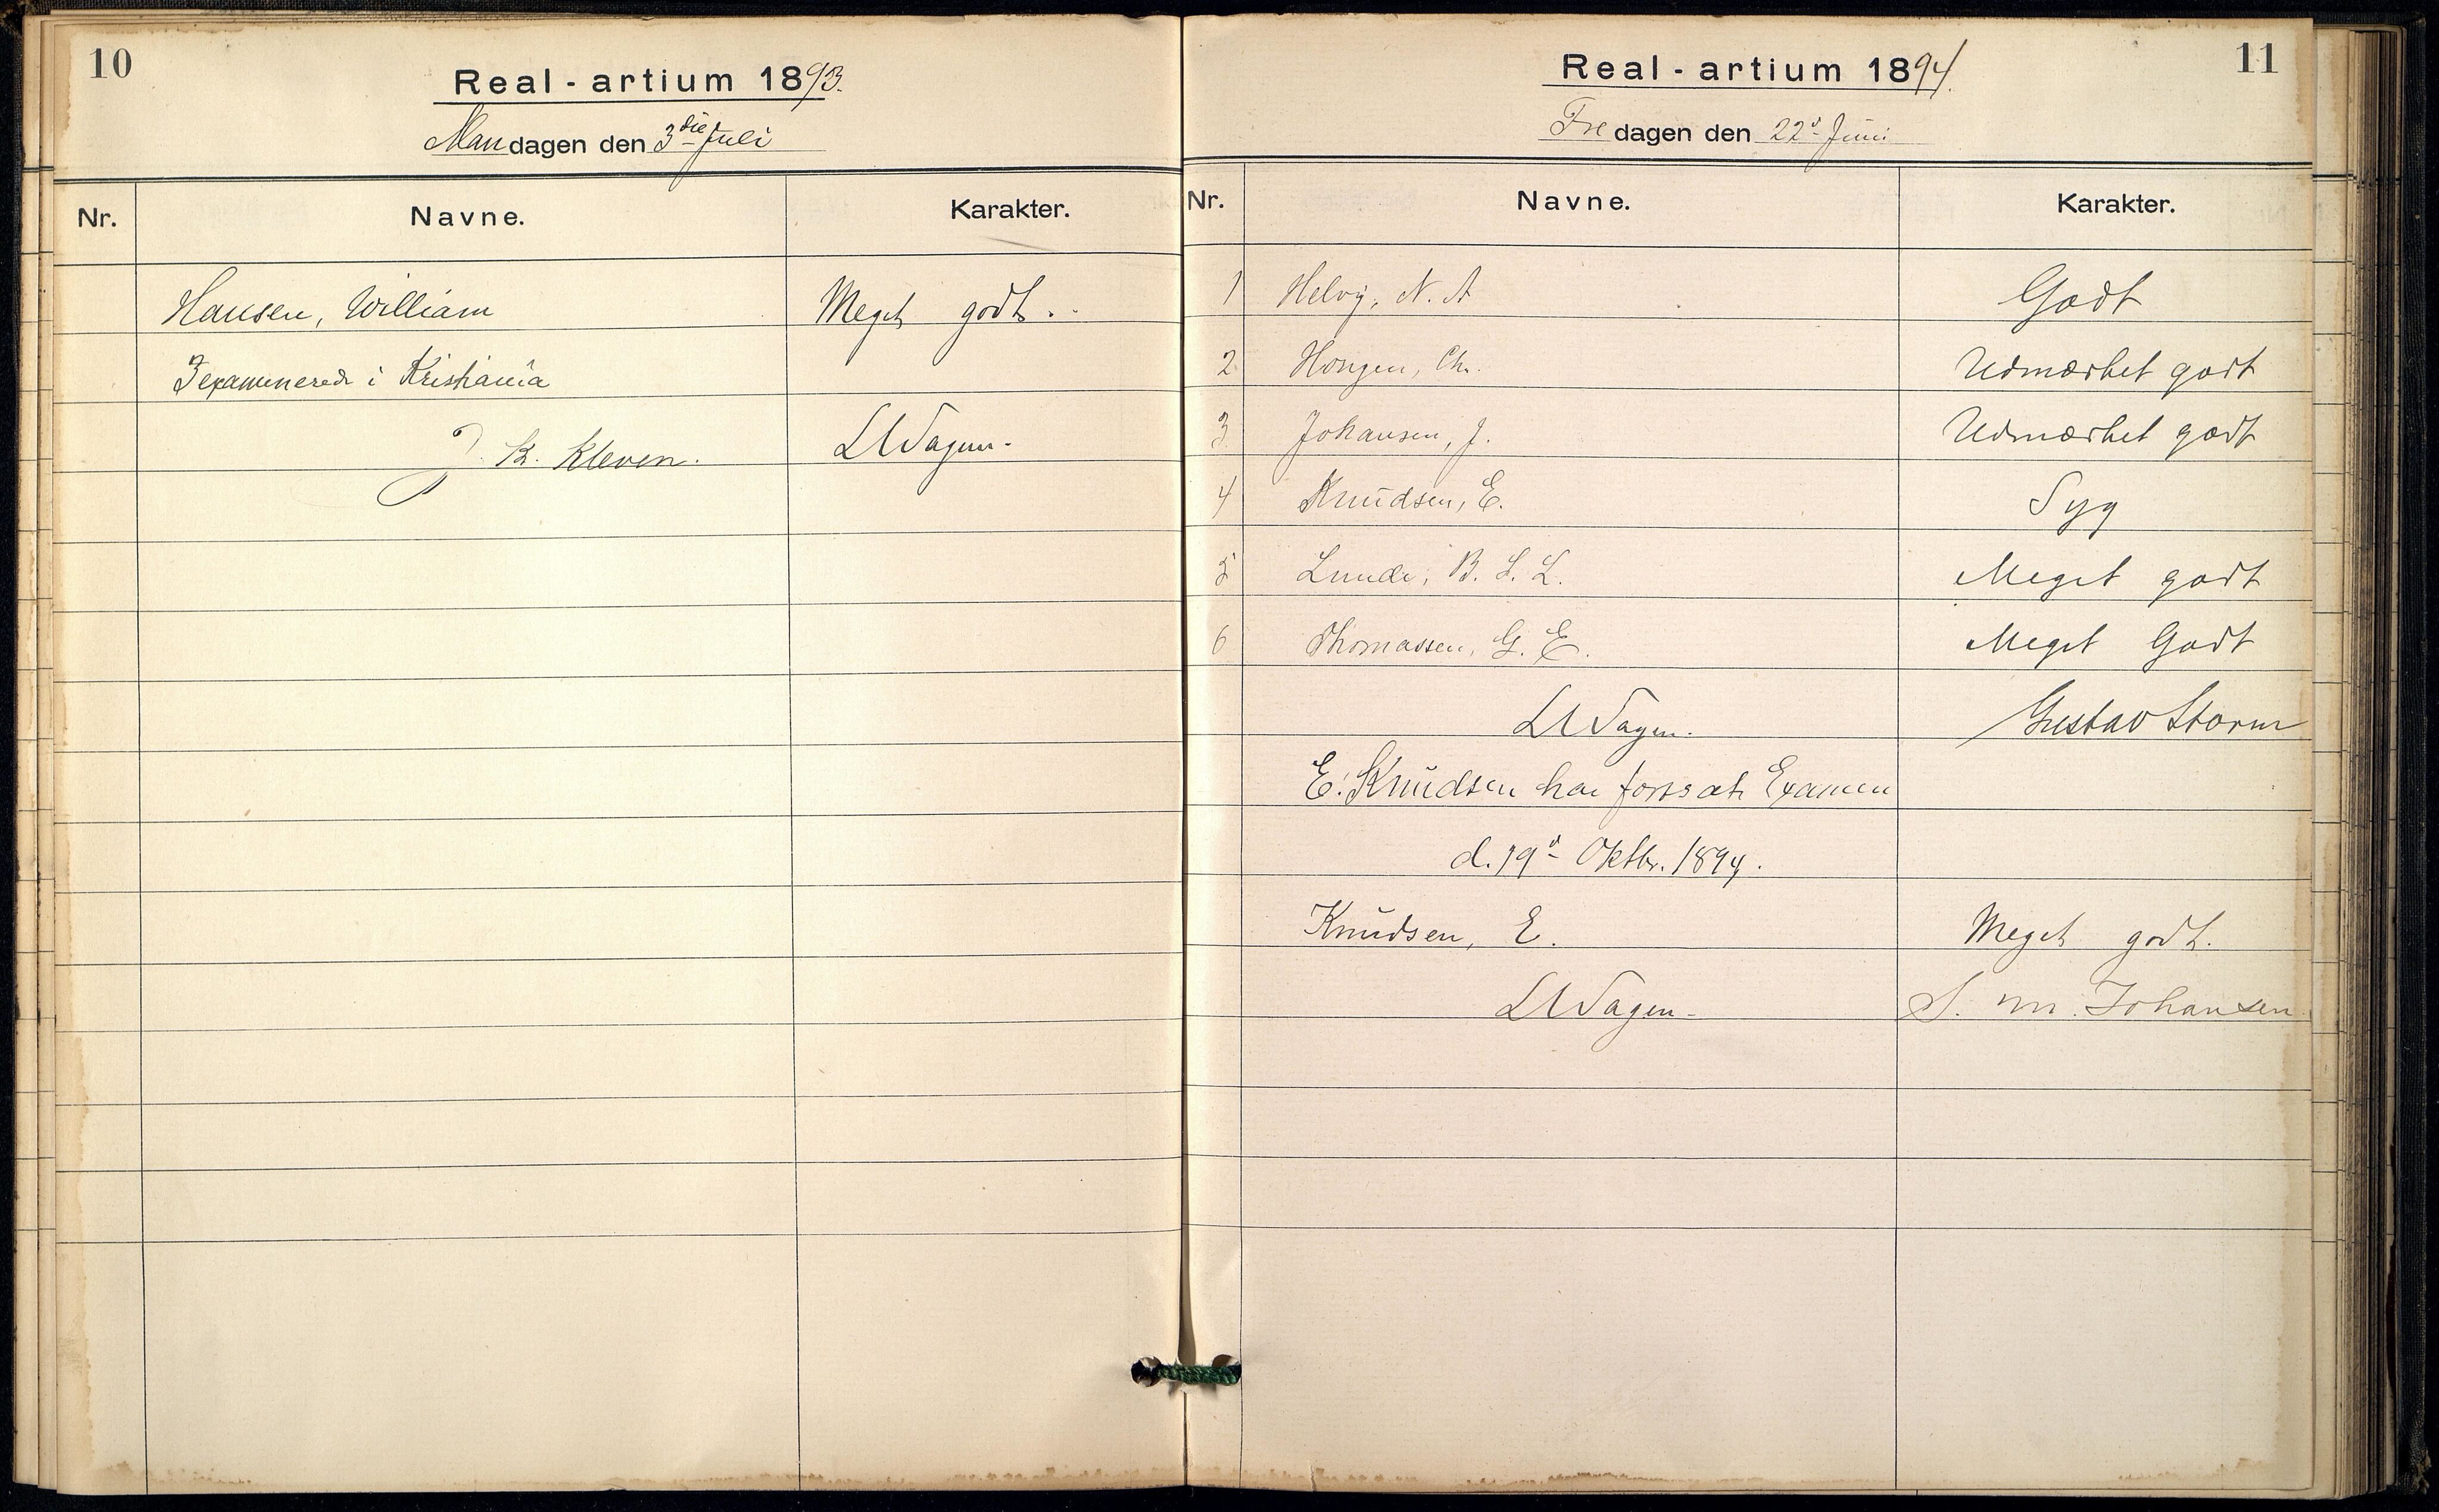 10
Real-artium 1893.
Mandagen den 3die Juli
Nr. Navne. Karakter.
Hansen, William Meget godt.
3 examinerede i Kristiania
J. K. Kleven. LWSagen
11
Real-artium 1894.
Fredagen den 22d Juni
Nr. Navne. Karakter.
1 Helvig, N. A Godt
2 Hougen, Ch. Udmærket godt
3 Johansen, J. Udmærket godt
4 Knudsen, E. Syg
5 Lunde, B. L. L. Meget godt
6 Thomassen, G. E. Meget Godt
Gustav Storm
E. Knudsen har forsat Examen
d. 19d Oktbr. 1894.
Knudsen, E. Meget godt.
S. m. Johansen